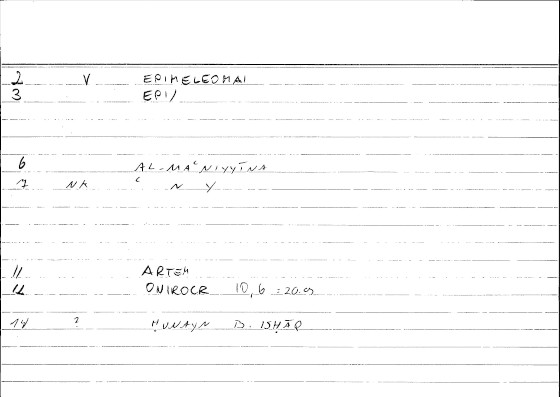 2 V EPIMELEOMAI
3 EPI/
6 AL-MAʿNIYYĪNA
7 NK ʿ N Y
11 ARTEM
12 ONIROCR 10,6 = 20.9
14 ? ḤUNAYN B. ISḤĀQ